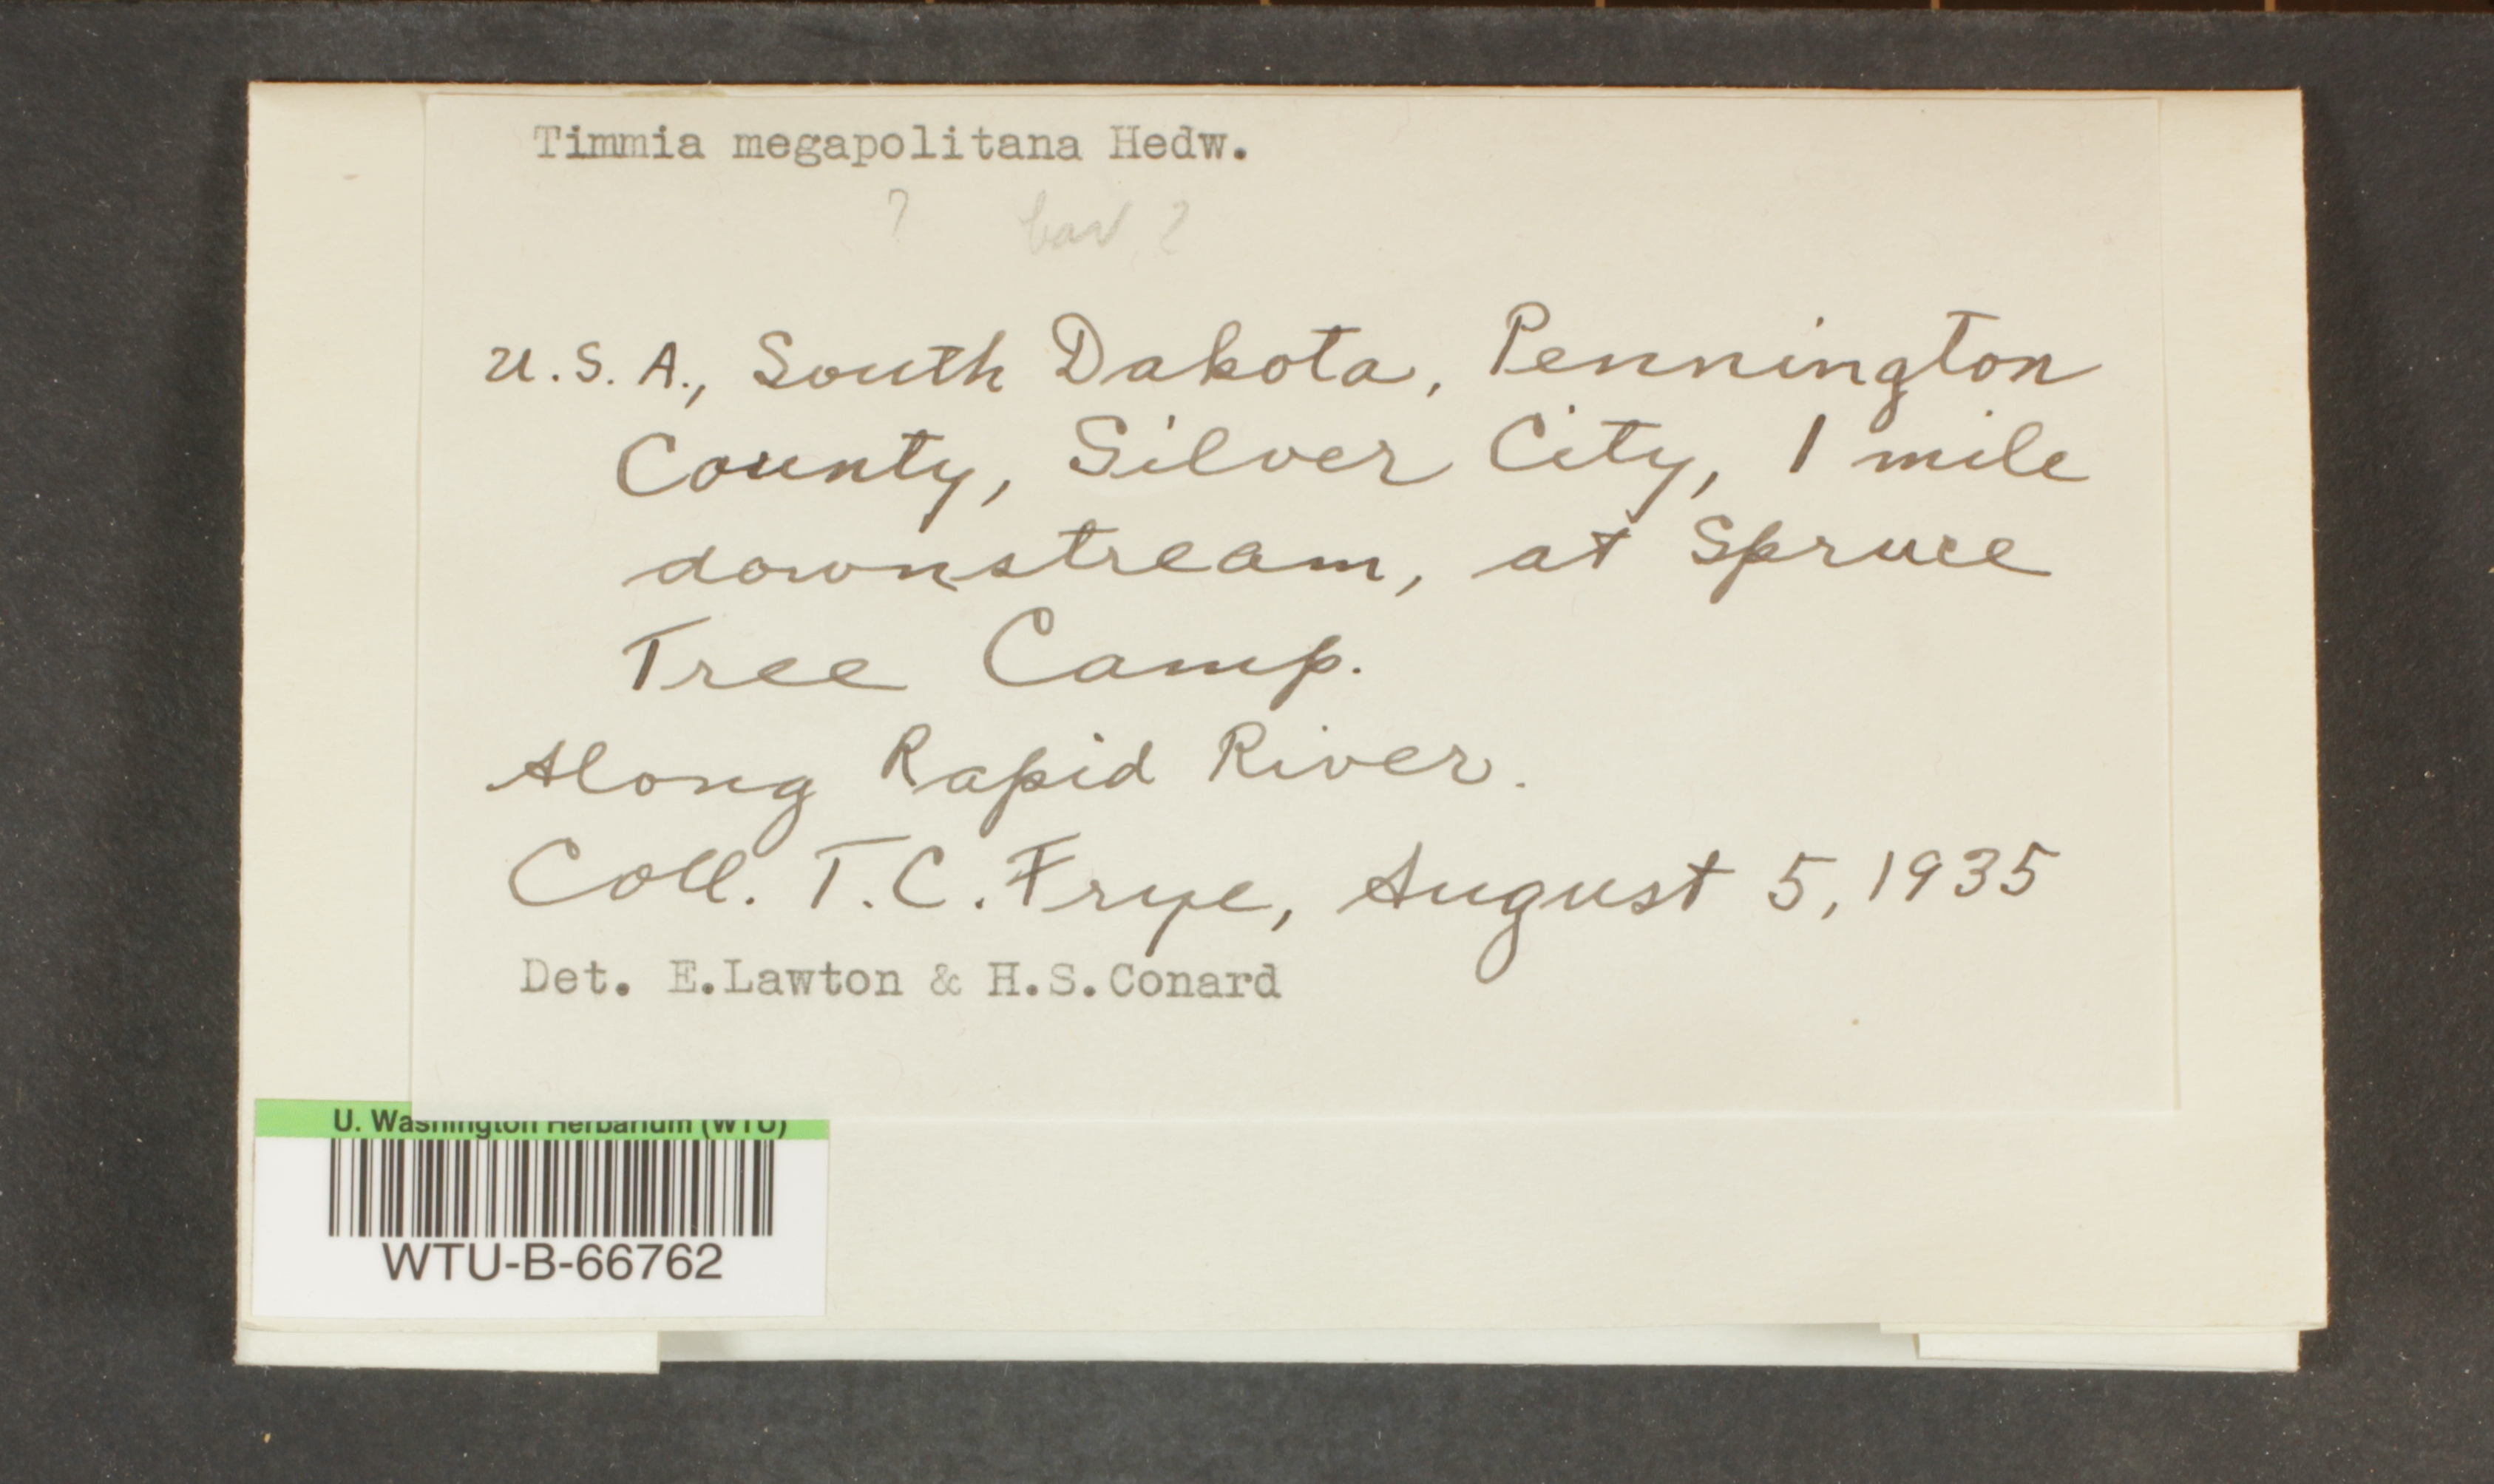 Timmia megapolitana Hedw.
? bav. ?
U.S.A., South Dakota, Pennington
County, Silver City, 1 mile
downstream, at Spruce
Tree Camp.
Along Rapid River.
Coll. T.C. Frye, August 5, 1935
Det. E.Lawton & H.S.Conard
U. Washington Herbarium (WTU)
WTU-B-66762